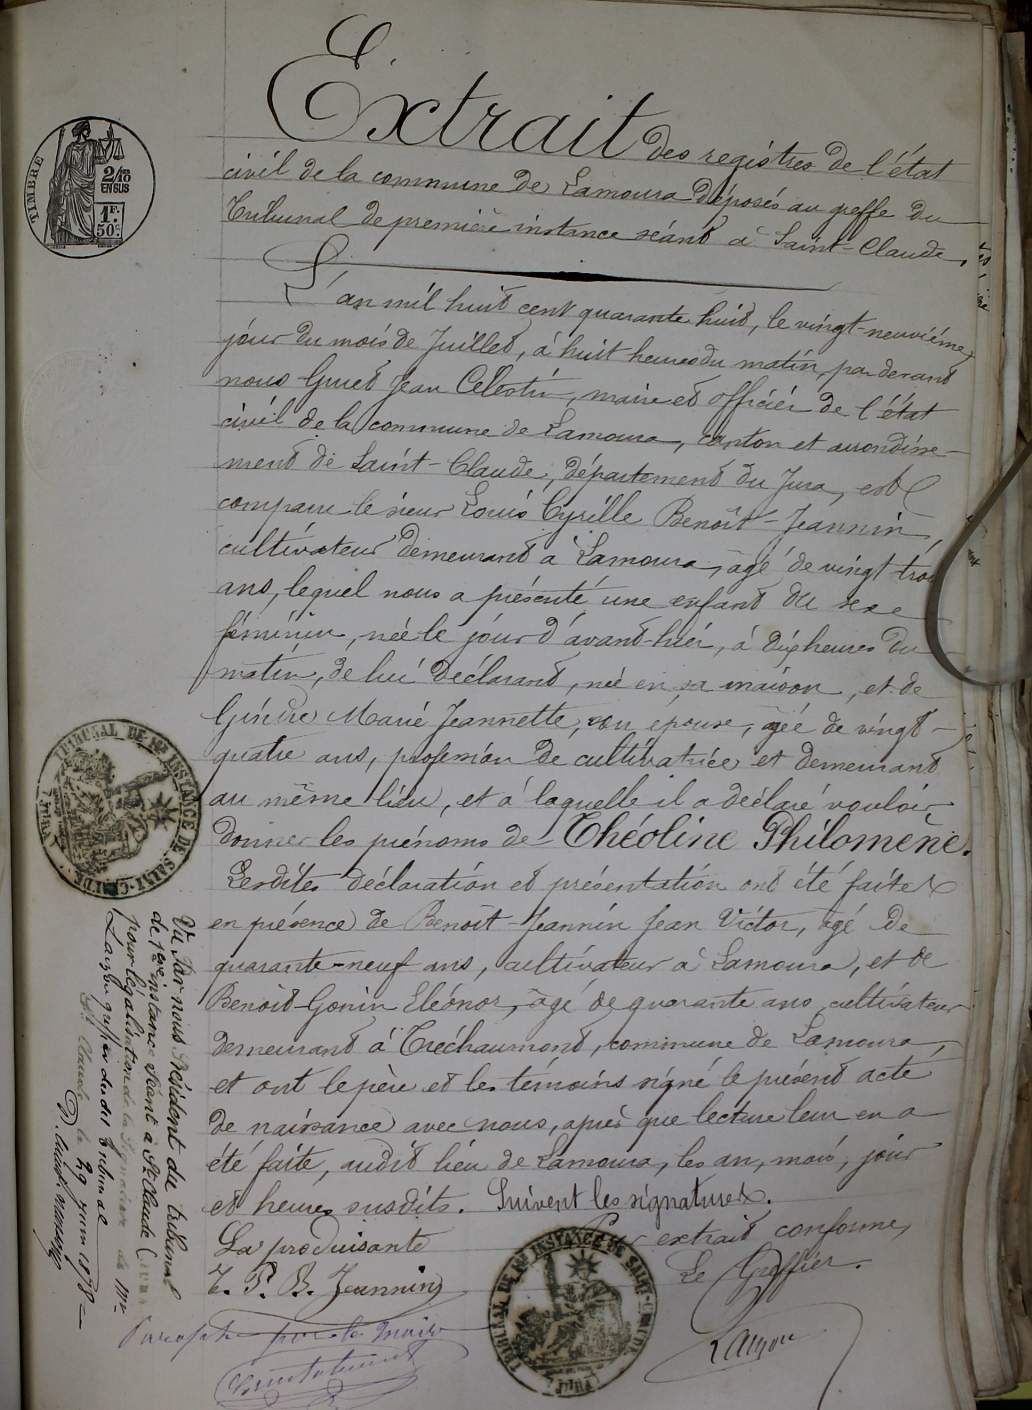 TIMBRE
2/10
EN SUS
1F.
50c.
Extrait des registres de l'état
civil de la commune de Lamoura déposés au greffe du
Tribunal de première instance séant à Saint-Claude.
L'an mil huit cent quarante huit, le vingt-neuvième
jour du mois de Juillet, à huit heures du matin, par devant
nous Guiet Jean Célestin, maire et officier de l'état
civil de la commune de Lamoura, canton et arrondisse-
ment de Saint-Claude, département du Jura, est
comparu le sieur Louis Cyrille Benoît-Jeannin,
cultivateur demeurant à Lamoura, âgé de vingt trois
ans, lequel nous a présenté une enfant du sexe
féminin, née le jour d'avant-hier, à dix heures du
matin, de lui déclarant, née en sa maison, et de
Marie Jeannette, son épouse, âgée de vingt-
quatre ans, profession de cultivatrice et demeurant
au même lieu, et à laquelle il a déclaré vouloir
donner les prénoms de Théoline Philomène.
Lesdites déclaration et présentation ont été faites
en présence de Benoît-Jeannin Jean Victor, âgé de
quarante-neuf ans, cultivateur à Lamoura, et de
Benoit-Gonin Eléonor, âgé de quarante ans, cultivateur
demeurant à Tréchaumont, commune de Lamoura,
et ont le père et les témoins signé le présent acte
de naissance avec nous, après que lecture leur en a
été faite, audit lieu de Lamoura, les an, mois, jour
et heures susdits. Suivent les signatures.
La produisante
Pour extrait conforme,
T. P. B. Jeannin
Le Greffier.
TRIBUNAL DE 1re INSTANCE DE SAINT-CLAUDE
(JURA)
Vu Par nous Président du tribunal
de 1ère instance séant à St Claude (Jura
pour légalisation de la signature de Mr
greffier du dit Tribunal
St Claude le 29 juin 1878
TRIBUNAL DE 1re INSTANCE DE SAINT-CLAUDE
(JURA)